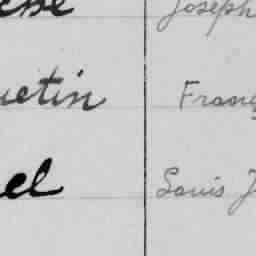 Joseph
uetin Franç
el Louis J